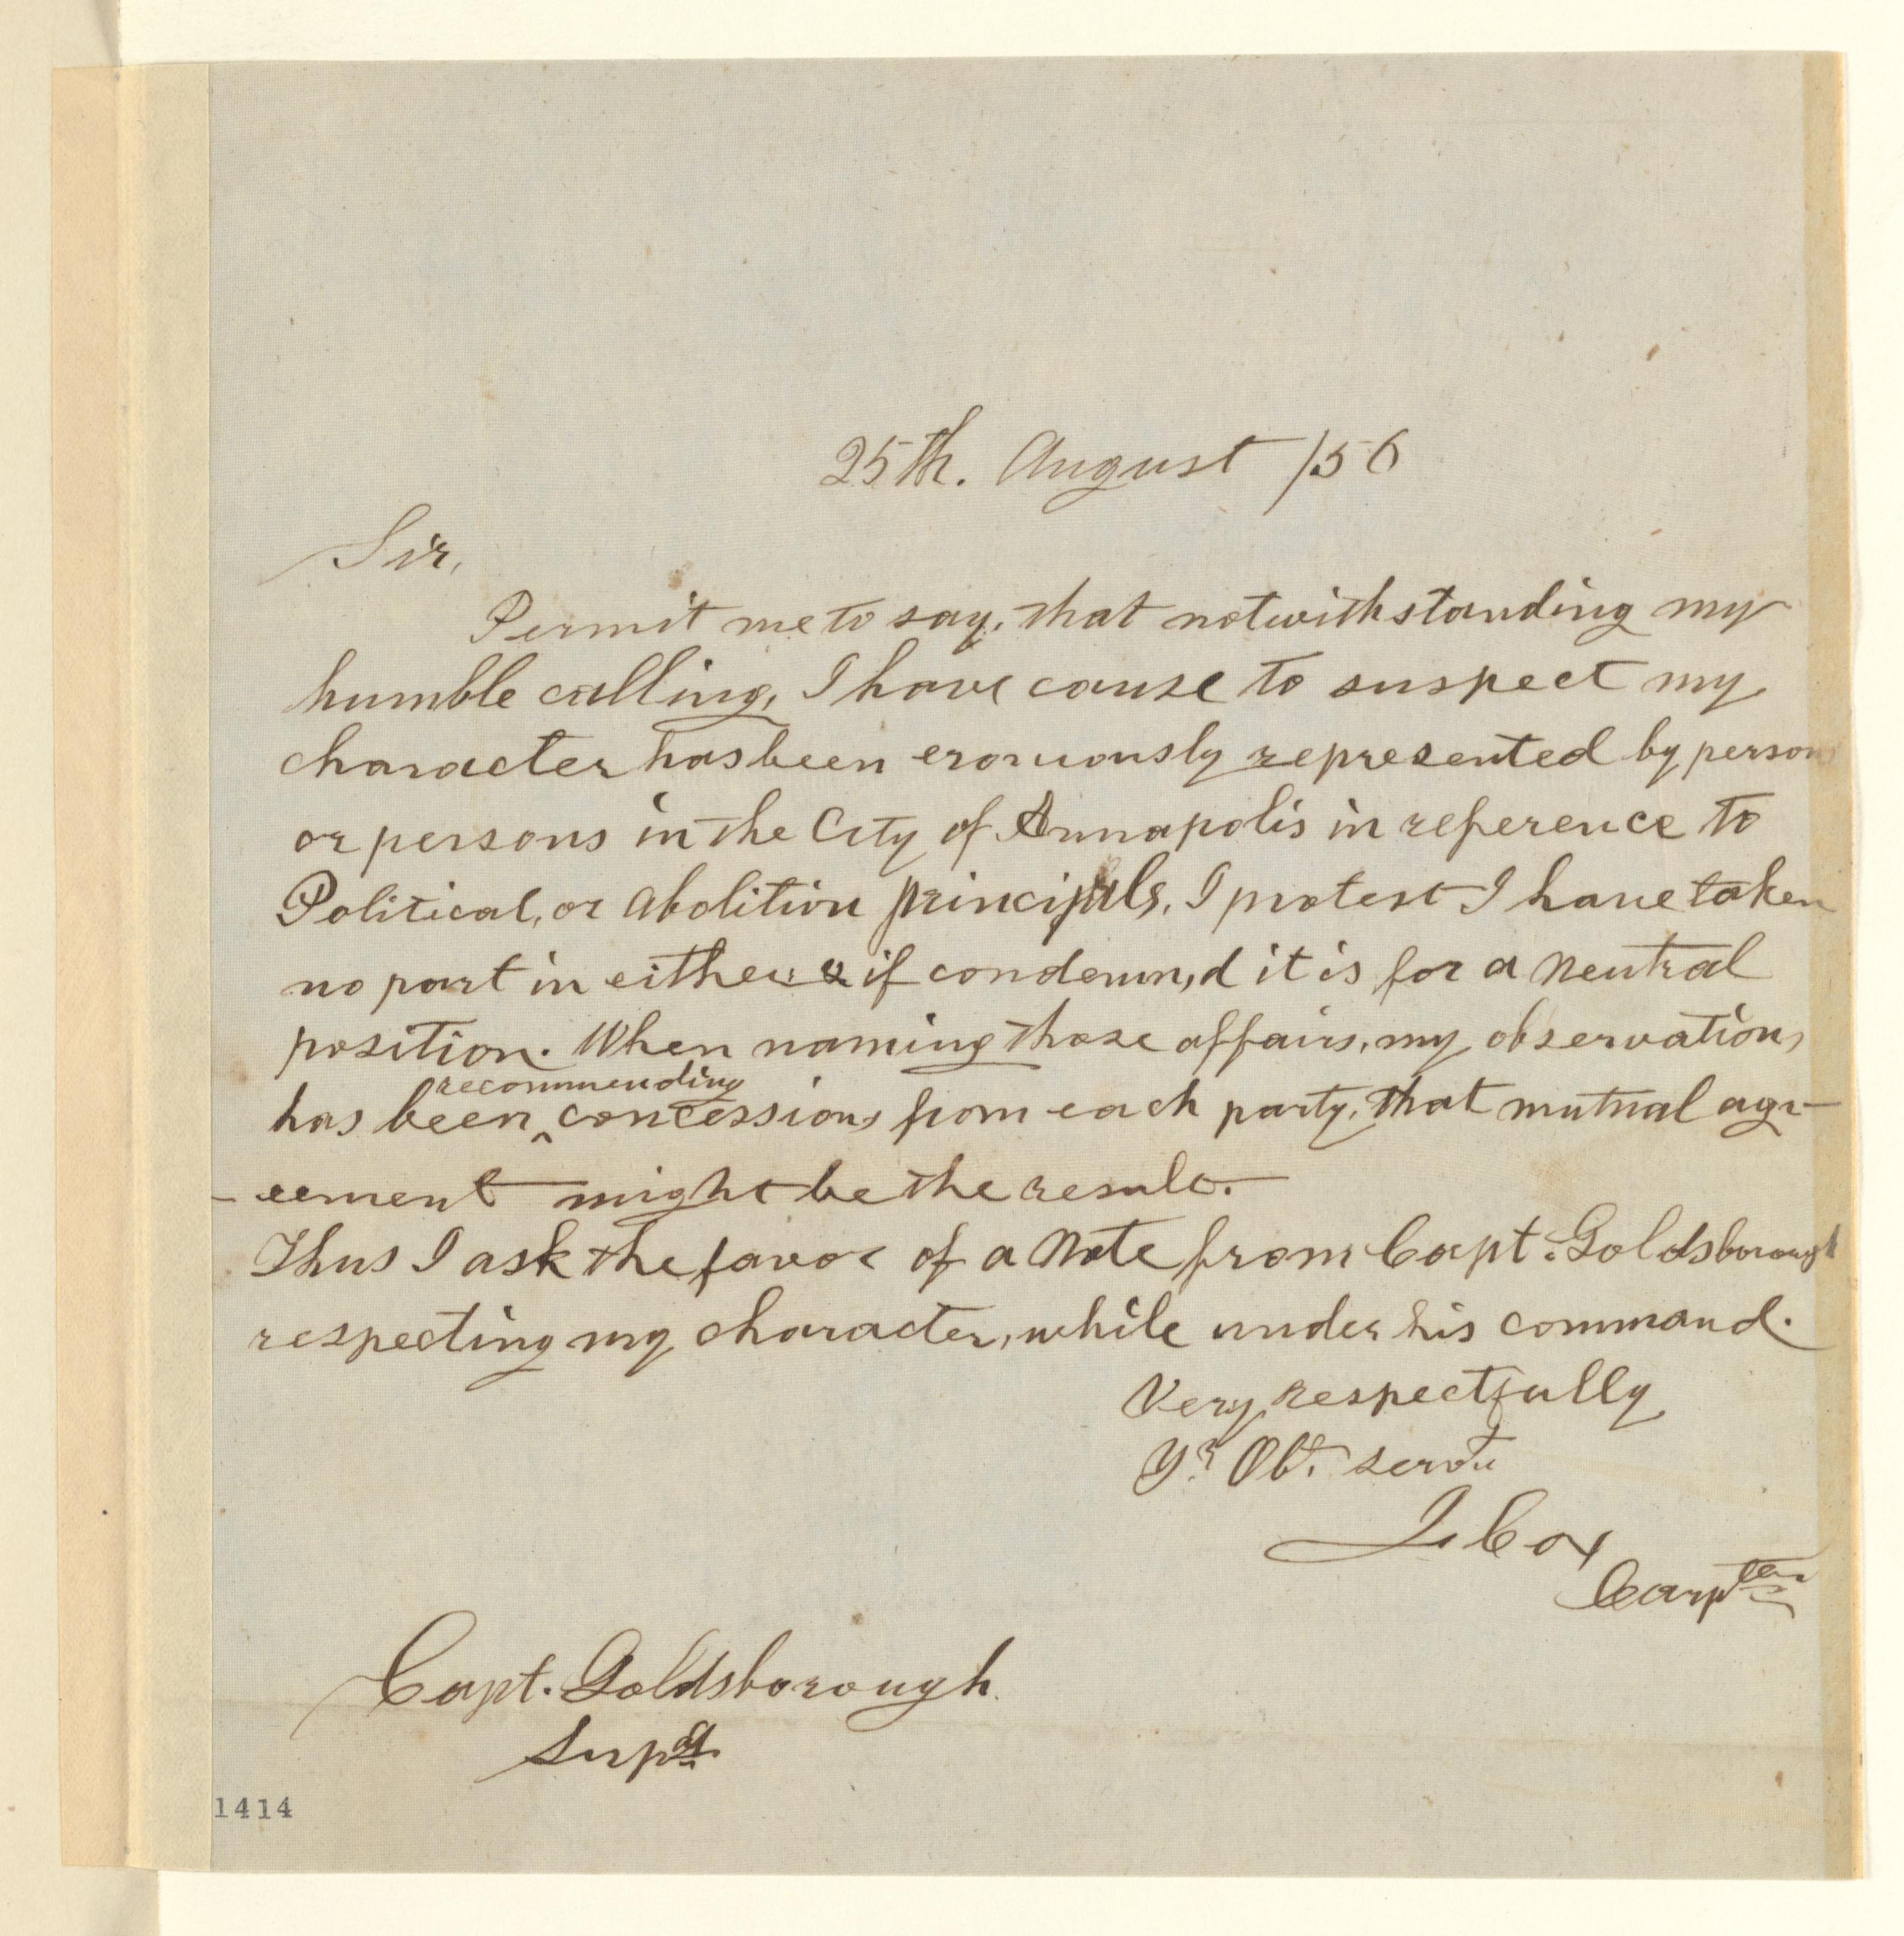 25th. August /56
Sir,
Permit me to say, that notwithstanding my
humble calling, I have cause to suspect my
character has been eroniously represented by person
or persons in the City of Annapolis in reference to
Political, or Abolition principals, I protest I have taken
no part in either & if condemn,d it is for a Neutral
position. When naming those affairs, my observations
has been ^recommending concessions from each party, that mutual agr-
-eement might be the result.
Thus I ask the favor of a Note from Capt. Goldsborough
respecting my character, while under his command.
Very respectfully
Yr Obt. servt
J. Cox
Carpter
Capt. Goldsborough
Supdt.
1414